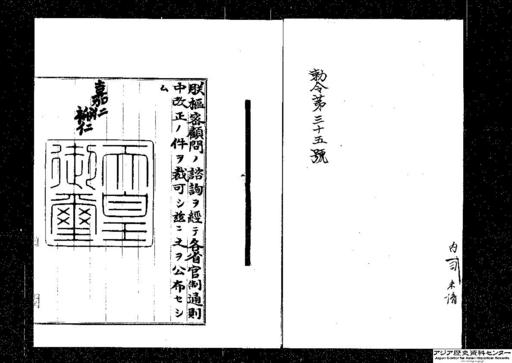 勅令第三十五號
朕樞密顧問ノ諮詢ヲ經テ各省官制通則
中改正ノ件ヲ裁可シ茲ニ之ヲ公布セシ
ム
嘉仁
裕仁
天皇
御璽
アジア歴史資料センター
Japan Center for Asian Historical Records